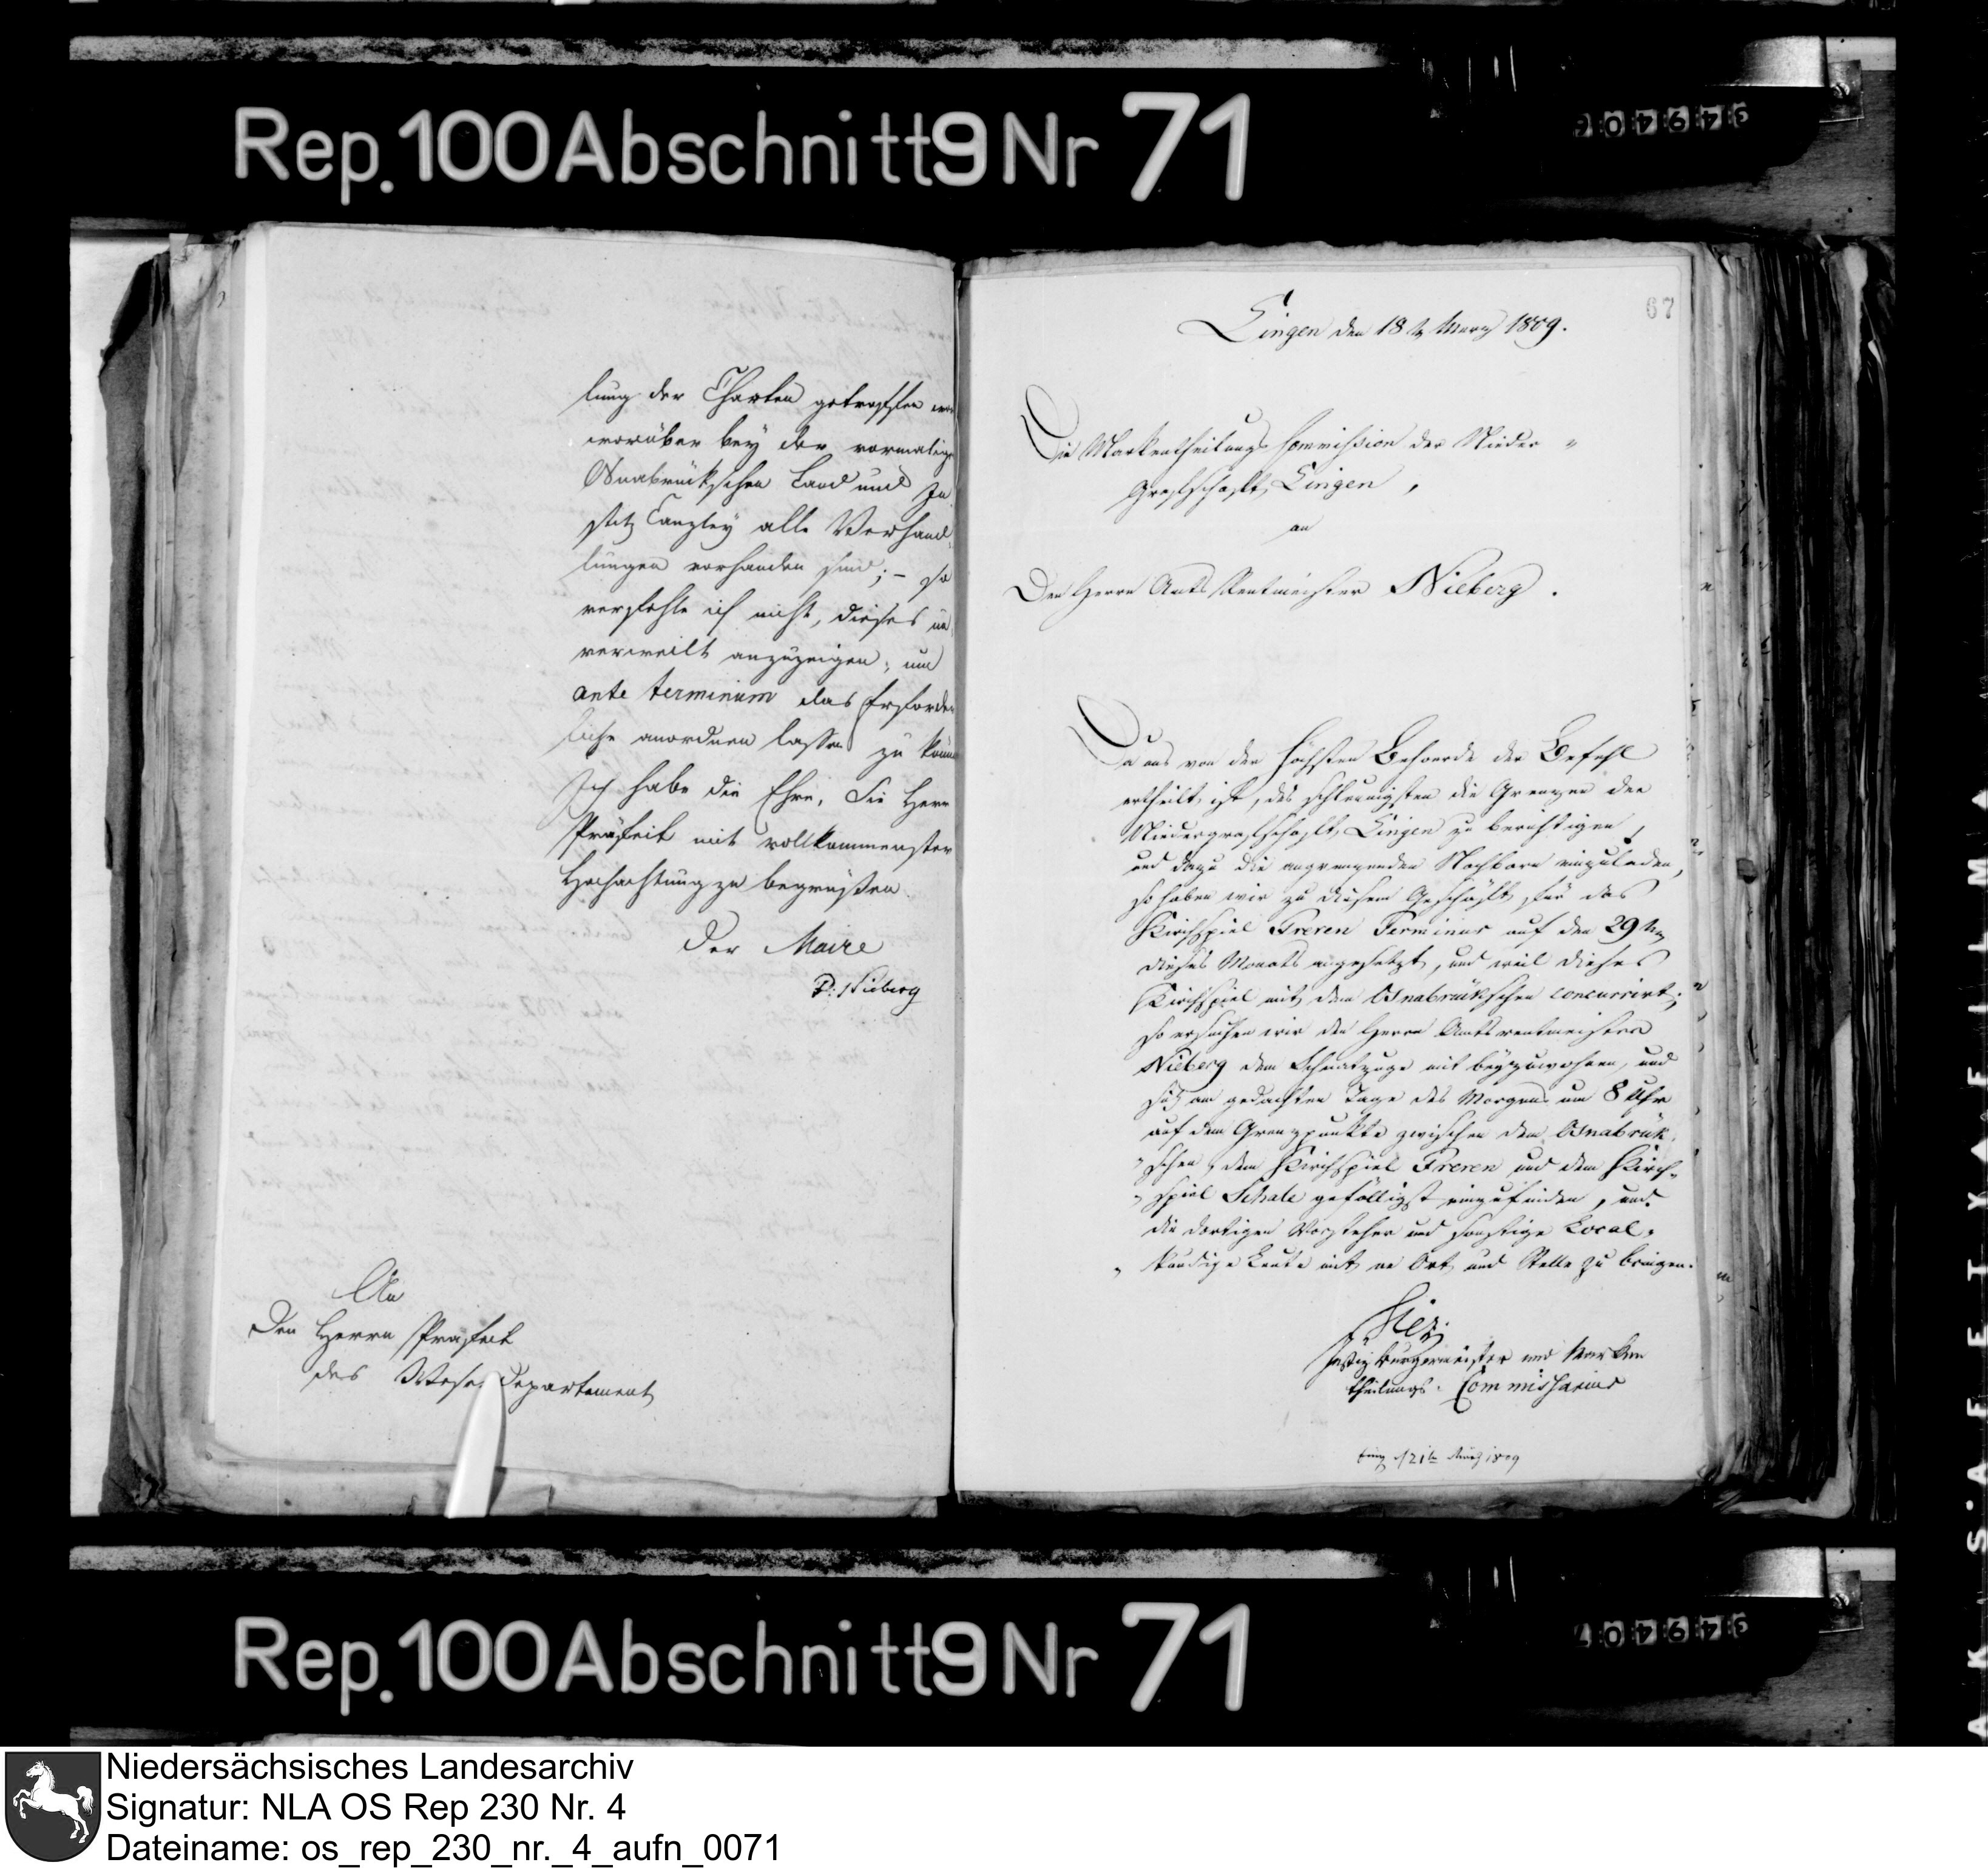 Rep. 100 Abschnitt 9 Nr 71
349406
lung der Charten getroffen
worüber bey der vormalige
Osnabrückschen Land und Ju
stitz Canzley alle Verhand
lungen vorhanden sind; – so
verfehle ich nicht, dieses un
verweilt anzuzeigen, um
ante terminum das Erforder
liche anordnen lassen zu könn
Ich habe die Ehre, Sie Herr
Präfect mit vollkommenster
Hochachtung zu begrüßen.
Der Maire
D: Nieberg
An
Den Herrn Präfect
des Weser departement
67
Lingen den 18t Merz 1809.
Die Markentheilungs Commission der Nieder =
Grafschaft Lingen,
an
Den Herrn Amts Rentmeister Nieberg.
Da uns von der höchsten Behoerde der Befehl
ertheilt ist, des schleunigsten die Grenzen der
Niedergrafschaft Lingen zu berichtigen,
und dazu die angrenzenden Nachbarn einzuladen,
so haben wir zu diesem Geschäft für das
Kirchspiel Freren Terminus auf den 29ten
dieses Monats angesetzt, und weil dieses
Kirchspiel mit dem Osnabrükschen concurrirt;
so ersuchen wir den Herrn Amtsrentmeister
Nieberg dem Schnatzuge mit beyzuwohnen, und
sich am gedachten Tage des Morgens um 8 Uhr
auf dem Grenzpunkte zwischen dem Osnabrük
schen, dem Kirchspiel Freren und dem Kirch=
spiel Schale gefälligst einzufinden, und
die dortigen Vorsteher und sonstige Local=
kundige Leute mit an Ort und Stelle zu bringen.
Justiz Burgermeister und Marken
theilungs. Commissarius
21te März 1809
Rep. 100 Abschnitt 9 Nr 71
349407
AK SAFETY AFILM A
Niedersächsisches Landesarchiv
Signatur: NLA OS Rep 230 Nr. 4
Dateiname: os_rep_230_nr._4_aufn_0071